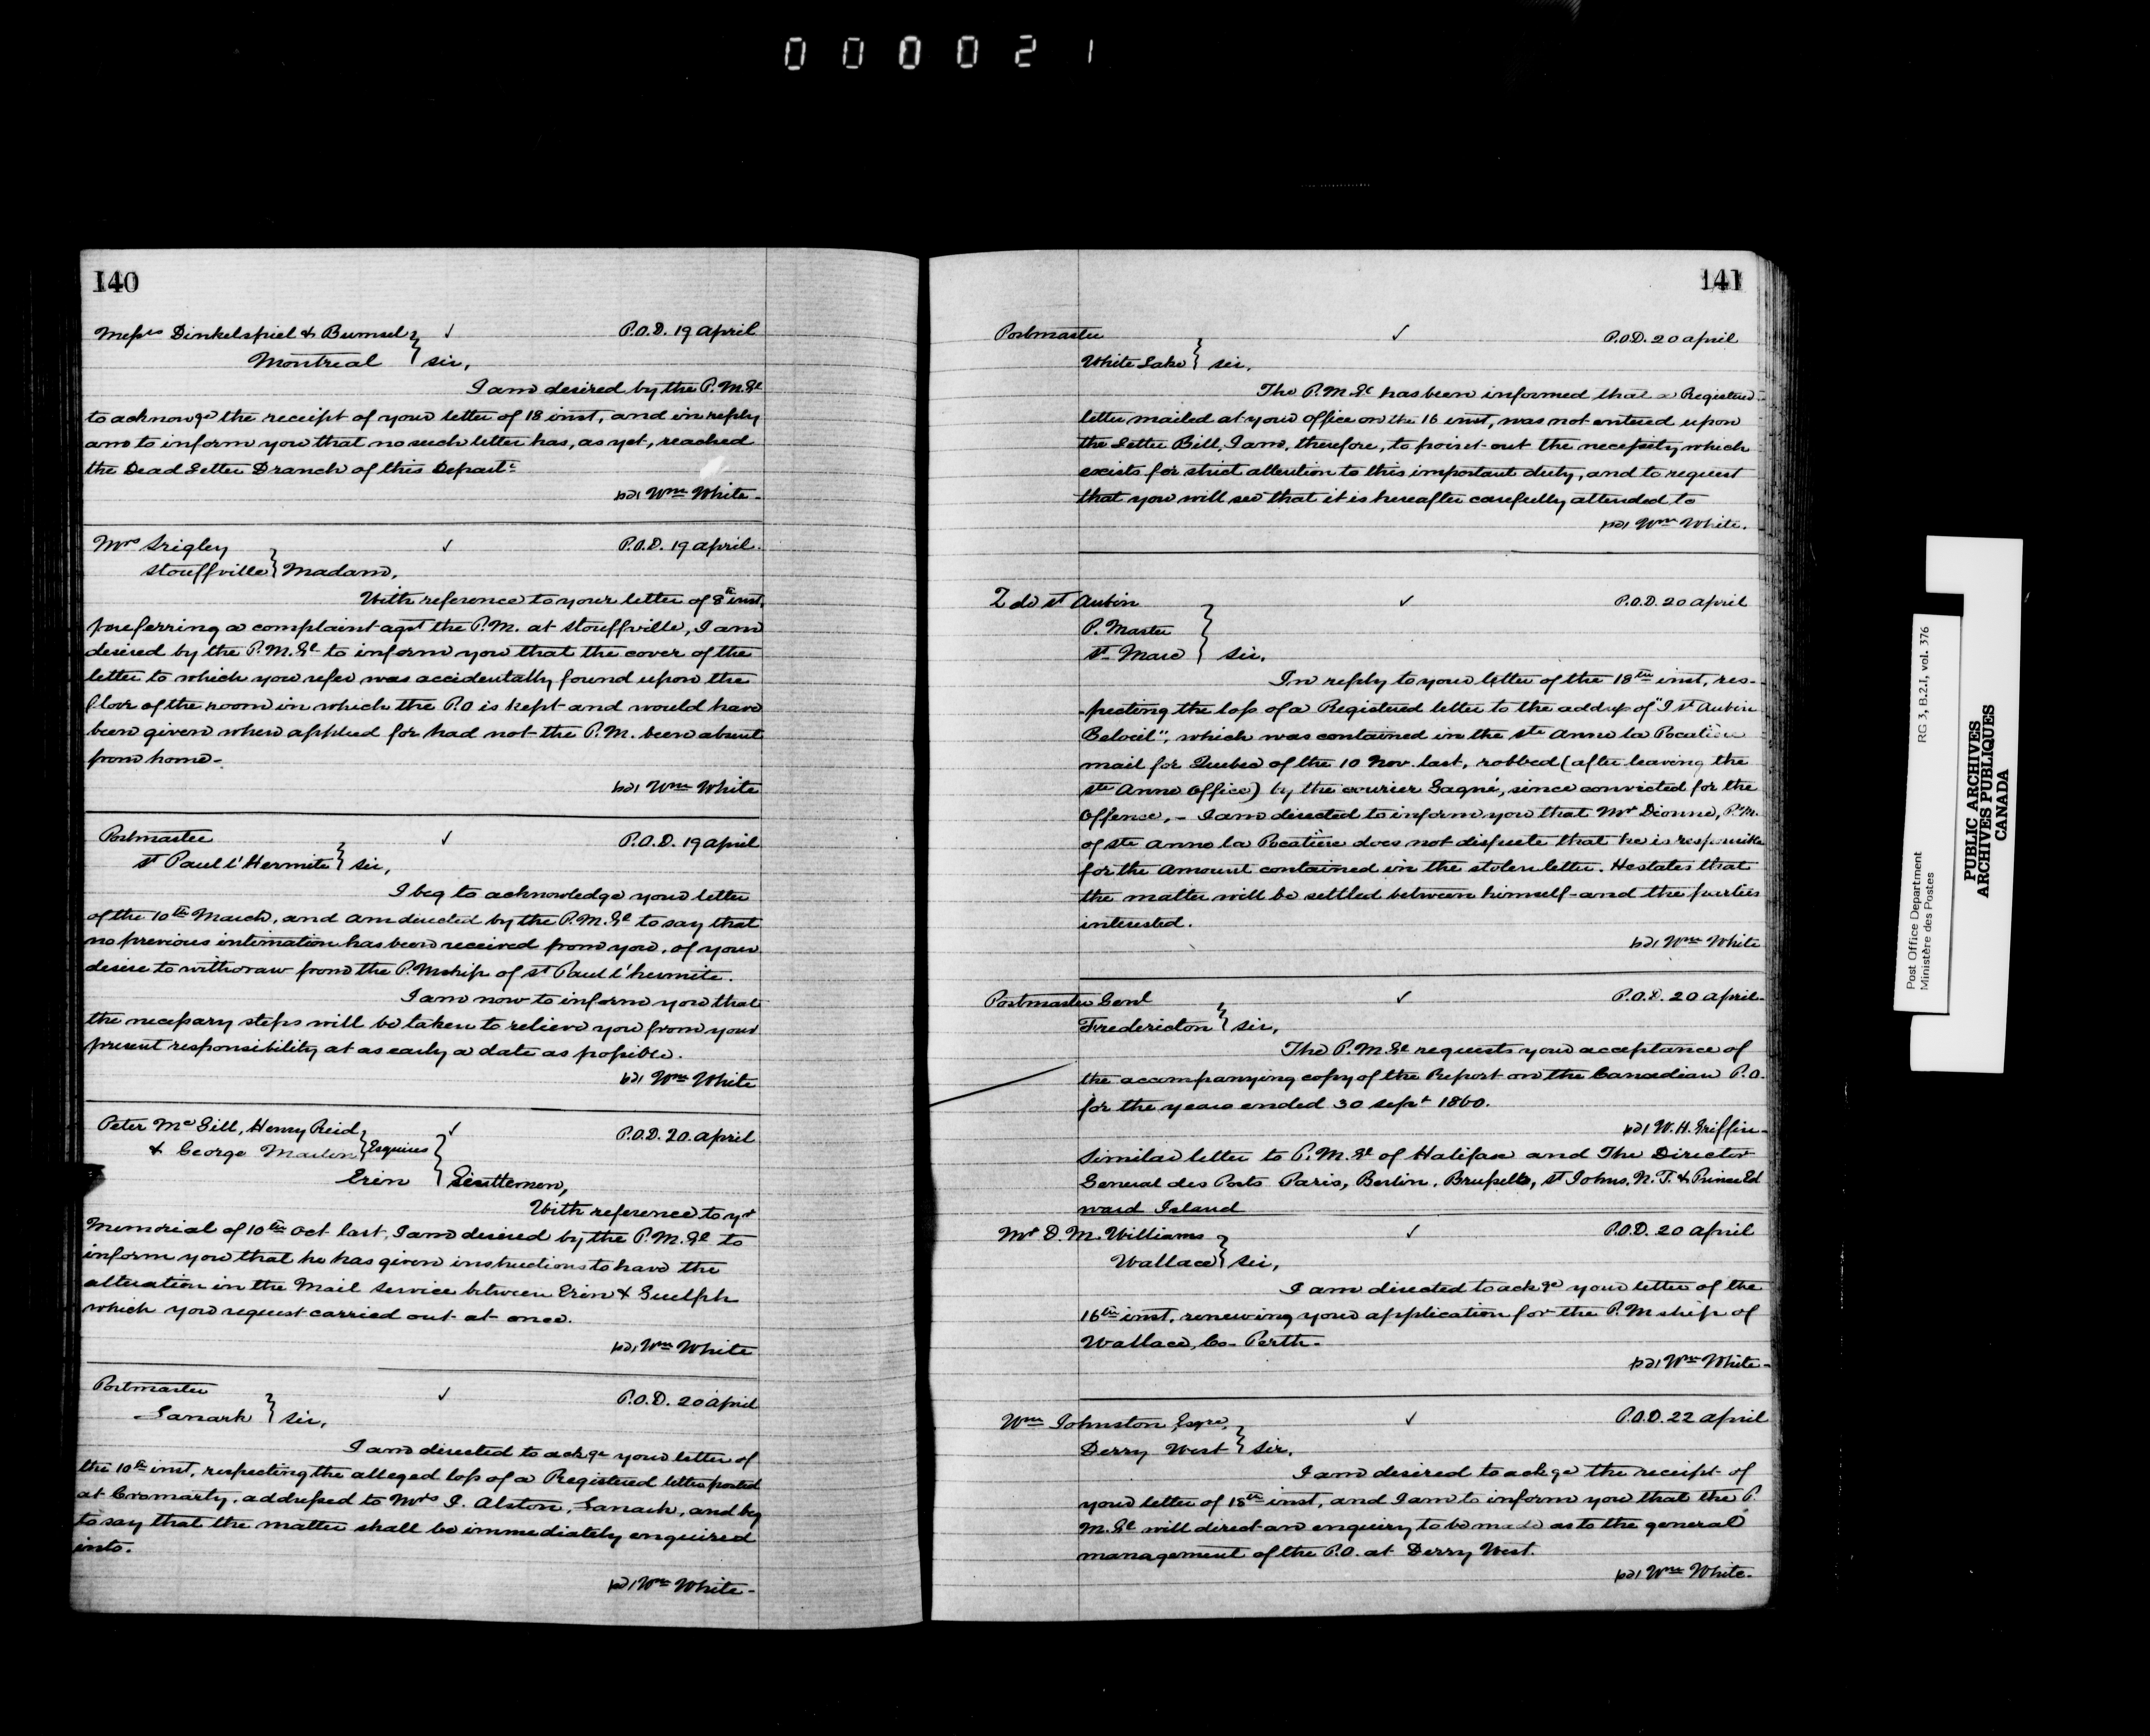 000021
140
Messrs Dinkelspiel & Bumsel ✓ P.O.D. 19 April
Montreal } Sir,
I am desired by the P.M.Gl
to acknowge the receipt of your letter of 18 inst, and in reply
am to inform you that no such letter has, as yet, reached
the Dead Letter Branch of this Departt.
sd/ Wm White -
Mrs Srigley ✓ P.O.D. 19 April.
Stouffville } Madam,
With reference to your letter of 8th inst,
preferring a complaint agst the P.M. at Stouffville, I am
desired by the P.M.Gl to inform you that the cover of the
letter to which you refer was accidentally found upon the
floor of the room in which the P.O is kept and would have
been given when applied for had not the P.M. been absent
from home -
sd/ Wm White
Postmaster ✓ P.O.D. 19 April
St Paul l'Hermite } Sir,
I beg to acknowledge your letter
of the 10th March, and am directed by the P.M.Gl to say that
no previous intimation has been received from you, of your
desire to withdraw from the P.Mship of St Paul l'hermite.
I am now to inform you that
the necessary steps will be taken to relieve you from your
present responsibility at as early a date as possible.
sd/ Wm White
Peter McGill, Henry Reid ✓ P.O.D. 20. April
& George Martin } Esquires
Erin } Gentlemen,
With reference to yr
Memorial of 10th Oct last, I am desired by the P.M.Gl to
inform you that he has given instructions to have the
alteration in the Mail Service between Erin & Guelph
which you request carried out at once.
sd/ Wm White
Postmaster ✓ P.O.D. 20 April
Lanark } Sir,
I am directed to ackge your letter of
the 10th inst, respecting the alleged loss of a Registered letter posted
at Cromarty, addressed to Mrs J. Alston, Lanark, and beg
to say that the matter shall be immediately enquired
into.
sd/ Wm White -
141
Postmaster ✓ P.O.D. 20 April
White Lake } Sir,
The P.M.Gl has been informed that a Registered
letter mailed at your office on the 16 inst, was not entered upon
the Letter Bill, I am, therefore, to point out the necessity which
exists for strict attention to this important duty, and to request
that you will see that it is hereafter carefully attended to
sd/ Wm White.
Z de St Aubin ✓ P.O.D. 20 April
P. Master
St Marc } Sir,
In reply to your letter of the 18th inst, res-
-pecting the loss of a Registered letter to the address of "J St Aubin
Beloeil", which was contained in the Ste Anne la Pocatière
mail for Quebec of the 10 Nov. last, robbed (after leaving the
Ste Anne Office) by the courier Gagné, since convicted for the
Offence, - I am directed to inform you that Mr Dionne, P.M.
of Ste Anne la Pocatière does not dispute that he is responsible
for the Amount contained in the stolen letter. He states that
the matter will be settled between himself and the parties
interested.
sd/ Wm White
Postmaster Genl ✓ P.O.D. 20 April -
Fredericton } Sir,
The P.M.Gl requests your acceptance of
the accompanying copy of the Report on the Canadian P.O.
for the year ended 30 Sept 1860.
sd/ W.H. Griffin -
Similar letter to P.M.Gl of Halifax and The Director
General des Posts Paris, Berlin, Brussells, St Johns, N.F. & Prince Ed
ward Island
Mr D. M. Williams ✓ P.O.D. 20 April
Wallace } Sir,
I am directed to ackge your letter of the
16th inst, renewing your application for the P.Mship of
Wallace, Co- Perth -
sd/ Wm White -
Wm Johnston, Esqre, ✓ P.O.D. 22 April
Derry West } Sir,
I am desired to ackge the receipt of
your letter of 18th inst, and I am to inform you that the P.
M.Gl will direct an enquiry to be made as to the general
management of the P.O. at Derry West.
sd/ Wm White.
Post Office Department
Ministère des Postes
RG 3, B.2.I, vol. 376
PUBLIC ARCHIVES
ARCHIVES PUBLIQUES
CANADA